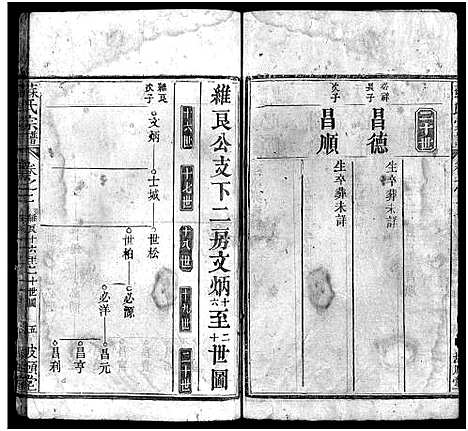 二十世
必祥長子
昌德
生卒葬未詳
次子
昌順
生卒葬未詳
維良公支下二房文炳十六至二十世圖
十六世
十七世
十八世
十九世
二十世
維良次子
文炳
士城
世松
世柏
必源
必洋
昌元
昌亨
昌利
氏宗譜
卷之二
維良十六至二十世圖
五